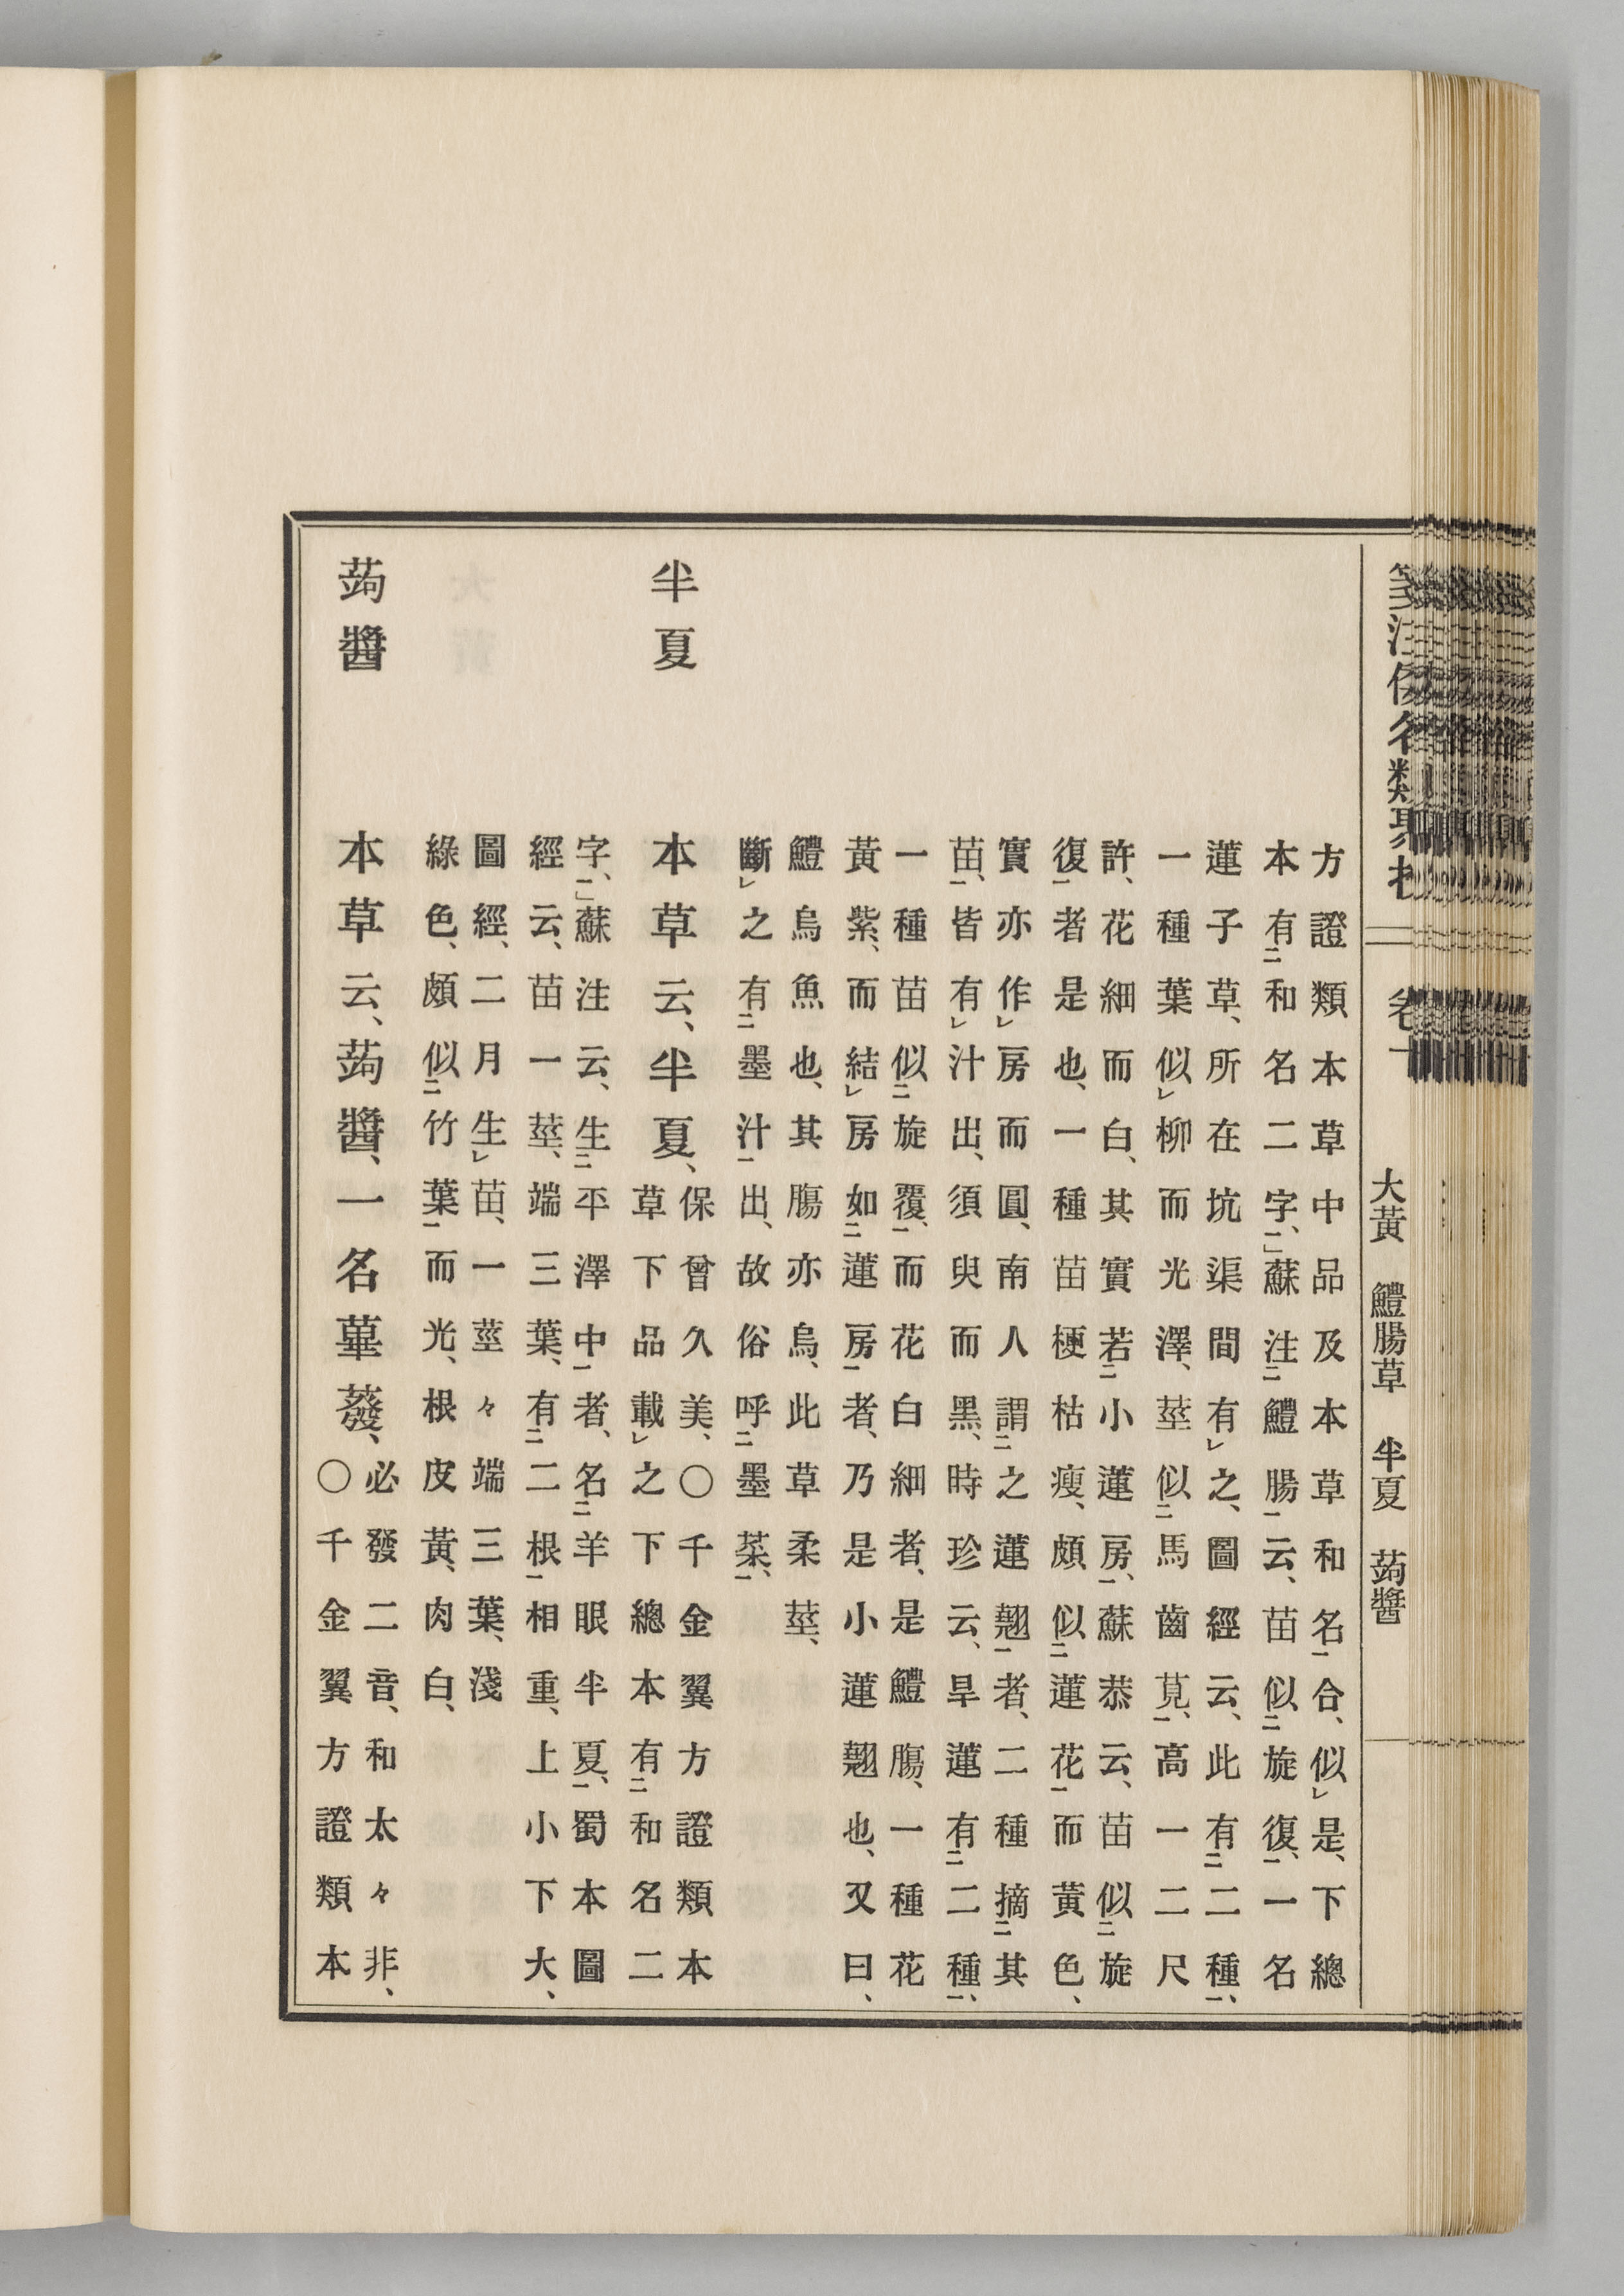 大黃　鱧腸草　半夏　蒟醬
方證類本草中品及本草和名㆒合、似㆑是、下總
本有㆓和名二字㆒、蘇注㆓鱧腸㆒云、苗似㆓旋復㆒、一名
蓮子草、所在坑渠間有㆑之、圖經云、此有㆓二種㆒、
一種葉似㆑柳而光澤、莖似㆓馬齒莧㆒、高一二尺
許、花細而白、其實若㆓小蓮房㆒、蘇恭云、苗似㆓旋
復㆒者是也、一種苗梗枯瘦、頗似㆓蓮花㆒而黃色、
實亦作㆑房而圓、南人謂㆓之蓮翹㆒者、二種摘㆓其
苗㆒、皆有㆑汁出、須臾而黑、時珍云、旱蓮有㆓二種㆒、
一種苗似㆓旋覆㆒、而花白細者、是鱧腸、一種花
黃紫、而結㆑房如㆓蓮房㆒者、乃是小蓮翹也、又曰、
鱧烏魚也、其腸亦烏、此草柔莖、
斷㆑之有㆓墨汁㆒出、故俗呼㆓墨菜㆒、
半夏　本草云、半夏、保曾久美、〇千金翼方證類本
草下品載㆑之下總本有㆓和名二
字㆒、蘇注云、生㆓平澤中㆒者、名㆓羊眼半夏㆒、蜀本圖
經云、苗一莖、端三葉、有㆓二根㆒相重、上小下大、
圖經、二月生㆑苗、一莖々端三葉、淺
綠色、頗似㆓竹葉㆒而光、根皮黃、肉白、
蒟醬　本草云、蒟醬、一名蓽蕟、必發二音、和太々非、
〇千金翼方證類本